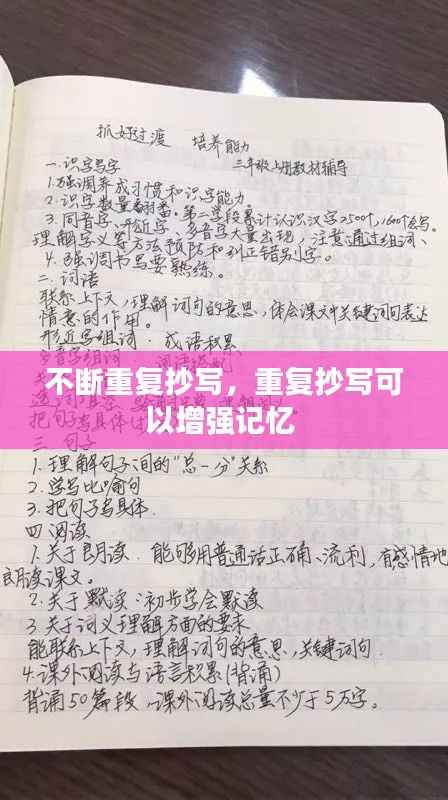 抓好过渡 培养能力
三年级上册教材辅导
一.识字写字
1.强调养成习惯和识字能力。
2.识字数量翻番。第二学段累计认识汉字2500个,1600个会写。
3.同音字、形近字、多音字大量出现,注意通过组词、
理解字义等方法预防和纠正错别字。
4.强调书写要熟练。
二.词语
联系上下文,理解词句的意思,体会课文中关键词句表达
情意的作用。
形近字组词.成语积累
不断重复抄写，重复抄写可
以增强记忆
三.句子
1.理解句子间的“总一分”关系
2.学写比喻句
3.把句子写具体.
四.阅读
1.关于朗读.能够用普通话正确、流利,有感情地
朗读课文。
2.关于默读:初步学会默读
3.关于词义理解方面的要求
能联系上下文,理解词句的意思,关键词句.
4.课外阅读与语言积累(背诵)
背诵50篇段,课外阅读总量不少于5万字。